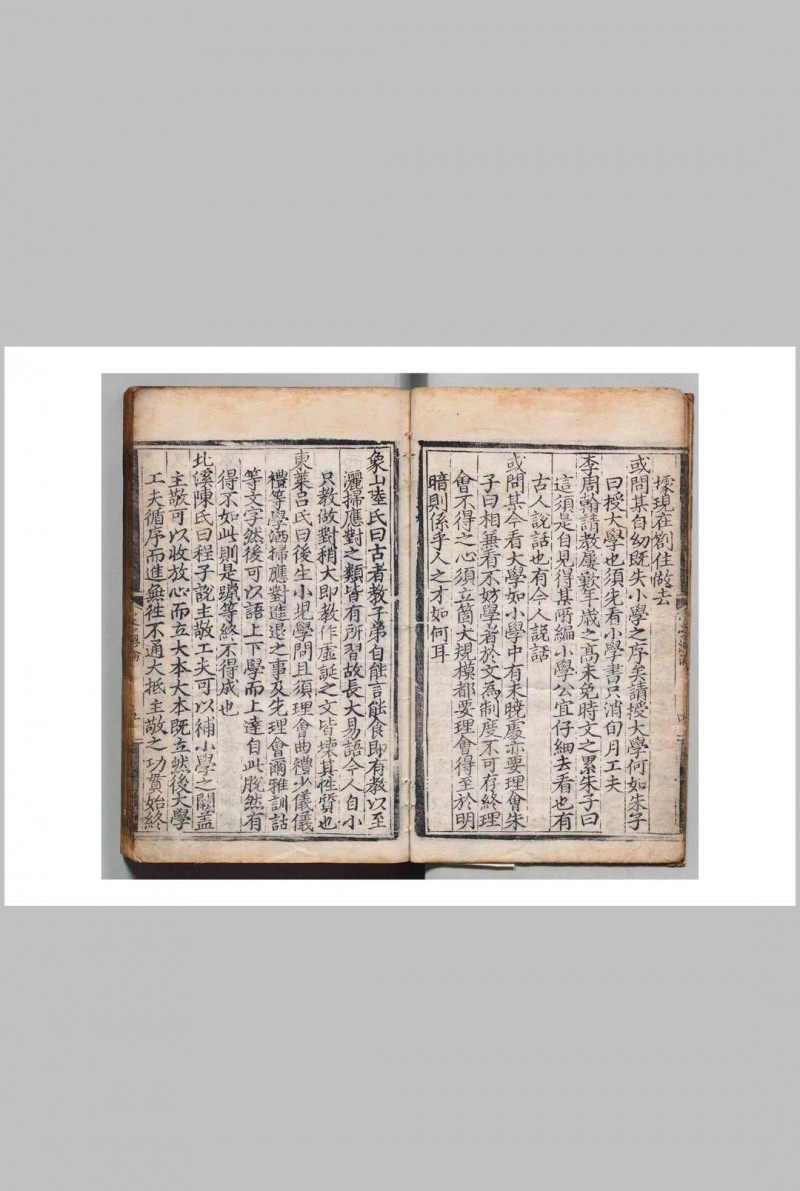 據現在劄住做去
或問某自幼既失小學之序矣請授大學何如朱子
曰授大學也須先看小學書只消旬月工夫
李周翰請教屢歎年歲之高未免時文之累朱子曰
這須是自見得某所編小學公宜仔細去看也有
古人說話也有今人說話
或問某今看大學如小學中有未曉處亦要理會朱
子曰相兼看不妨學者於文為制度不可存終理
會不得之心須立箇大規模都要理會得至於明
暗則係乎人之才如何耳
象山陸氏曰古者教子弟自能言能食即有教以至
灑掃應對之類皆有所習故長大易語今人自小
只教做對稍大即教作虛誕之文皆壞其性質也
東萊呂氏曰後生小兒學問且須理會曲禮少儀儀
禮等學洒掃應對進退之事及先理會爾雅訓詁
等文字然後可以語上下學而上達自此脫然有
得不如此則是躐等終不得成也
北溪陳氏曰程子說主敬工夫可以補小學之闕蓋
主敬可以收放心而立大本大本既立然後大學
工夫循序而進無往不通大抵主敬之功貫始終